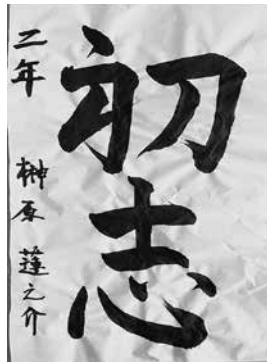 初志
二年 榊原 蓮之介